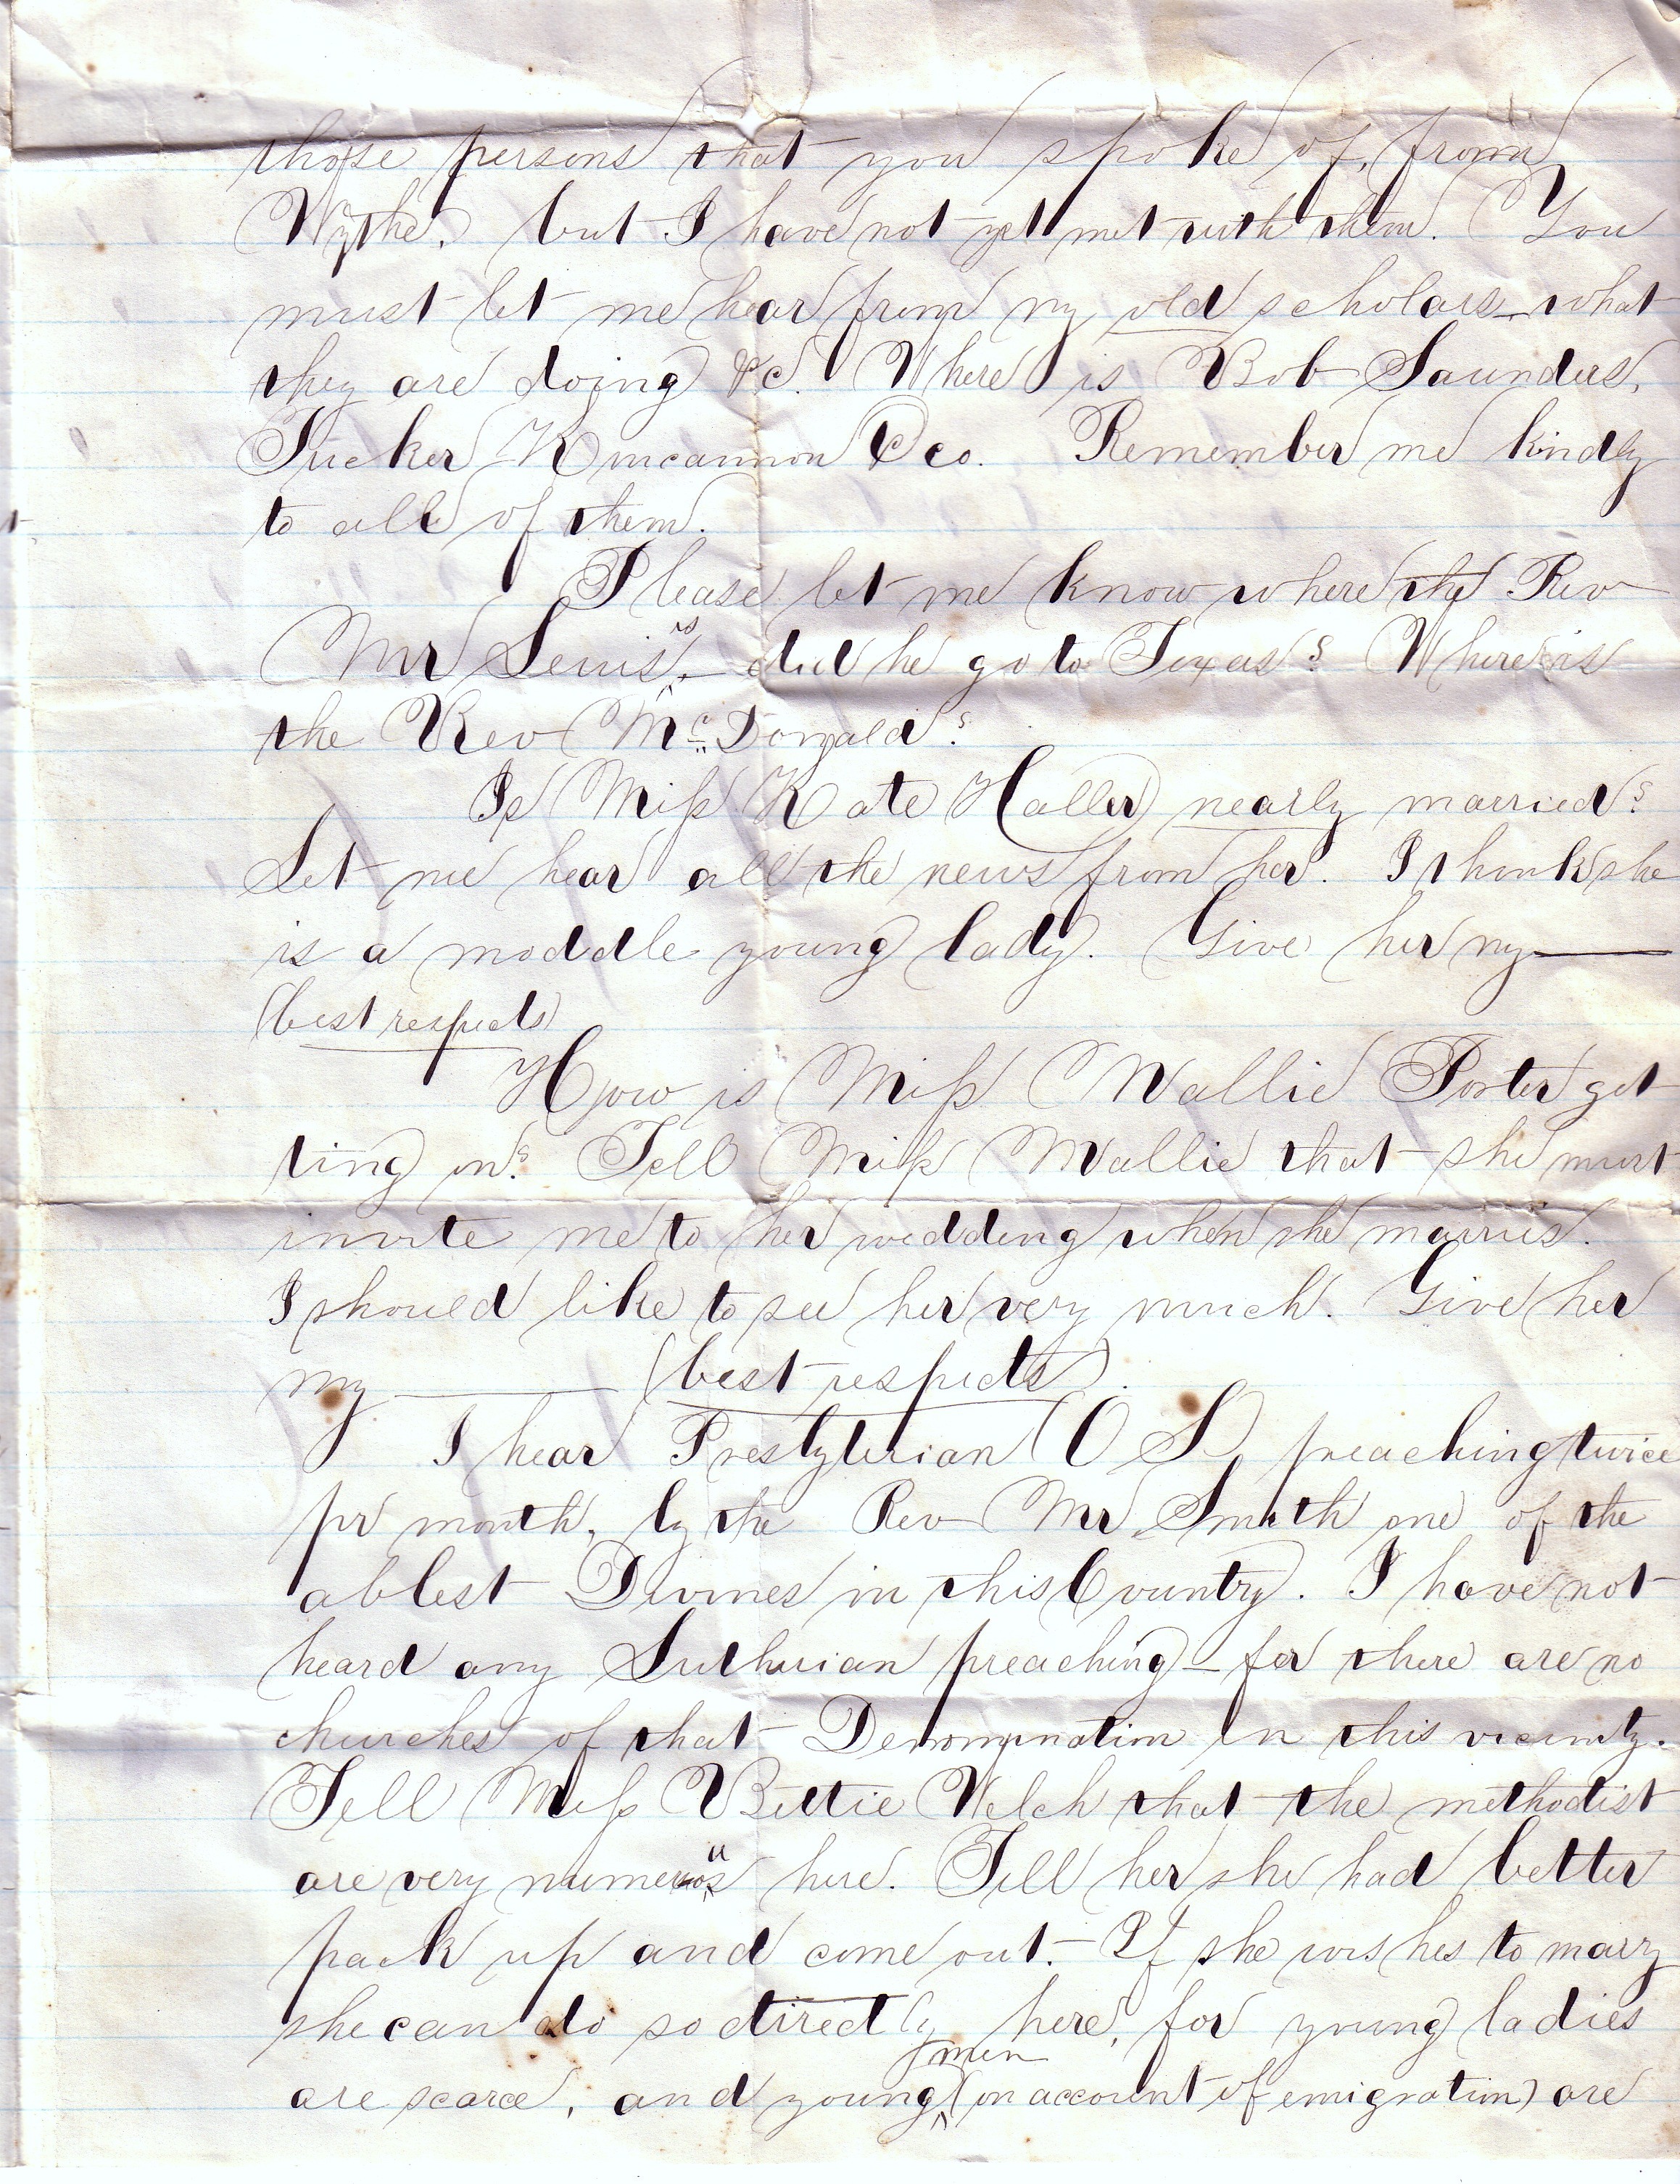 those persons that you spoke of, from
Wythe, but I have not yet met with them. You
must let me hear from my old scholars—what
they are doing &c. Where is Bob Saunders,
Tucker Kincannon & co. Remember me kindly
to all of them.
Please let me know where the Rev
Mr Lewis is,— did he go to Texas? Where is
the Rev McDonald?
Is Miss Kate Haller nearly married?
Let me hear all the news from her. I think she
is a moddle young lady. Give her my ——
(best respects)
How is Miss Mallie Porter get
ting on? Tell Miss Mallie that she must
invite me to her wedding when she marries.
I should like to see her very much. Give her
my —— (best respects).
I hear Presbyterian (O S) preaching twice
pr month, by the Rev Mr Smith one of the
ablest Divines in this Country. I have not
heard any Lutherian preaching— for there are no
churches of that Denomination in this vicinity.
Tell Miss Bettie Welch that the methodist
are very numerous here. Tell her she had better
pack up and come out.— If she wishes to marry
she can do so directly here, for young ladies
are scarce, and young men (on account of emigration) are